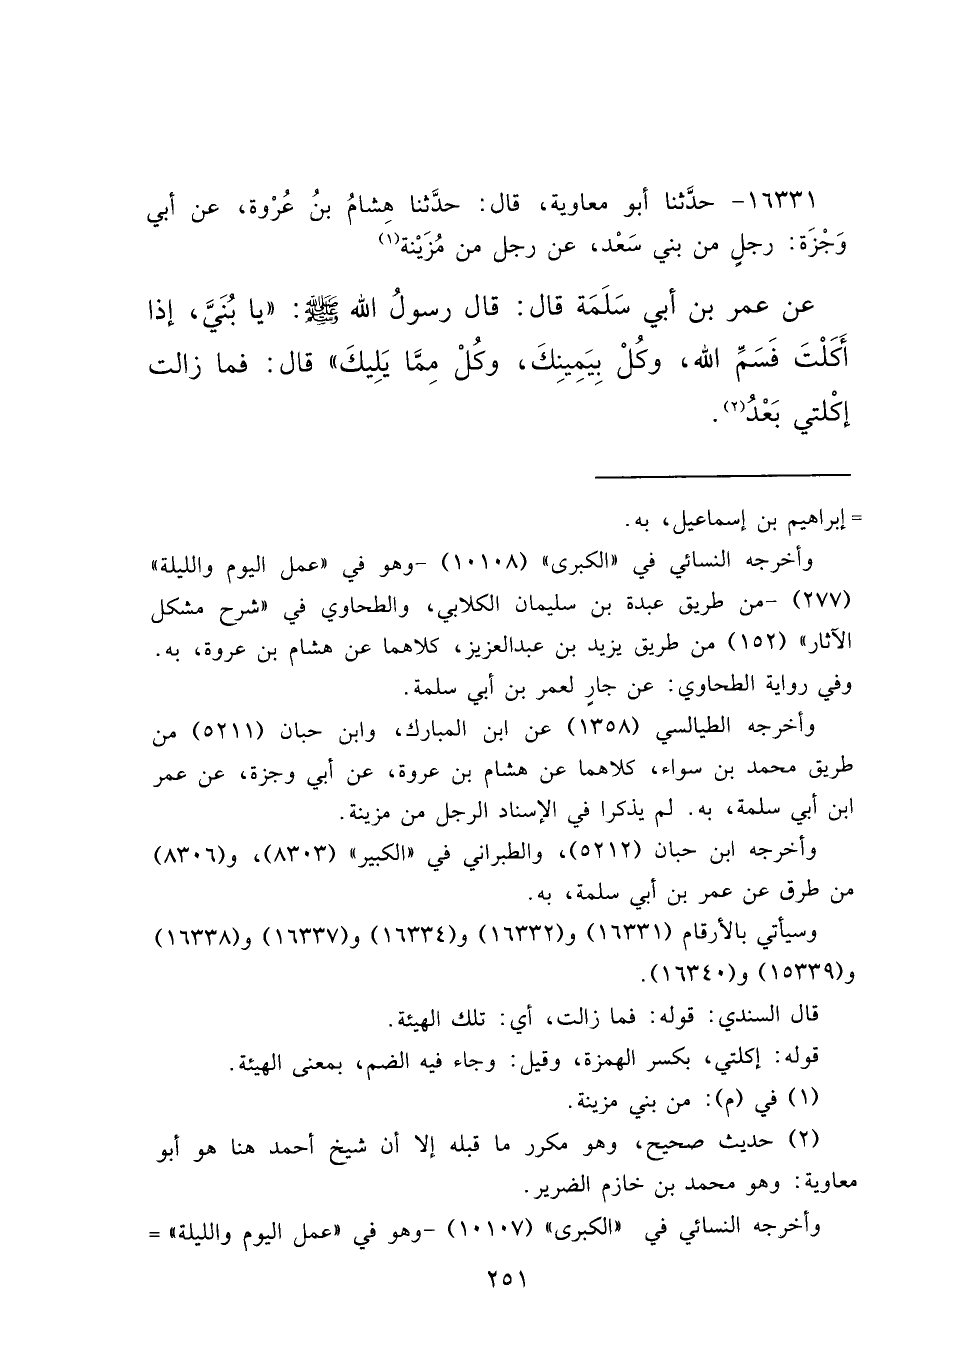 ١٦٣٣١- حدَّثنا أبو معاوية، قال: حدَّثنا هِشامُ بنُ عُرْوة، عن أبي
وَجْزَة: رجلٍ من بني سَعْد، عن رجل من مُزَيْنة(١)
عن عمر بن أبي سَلَمَة قال: قال رسولُ الله ﷺ: «يا بُنَيَّ، إذا
أَكَلْتَ فَسَمِّ الله، وكُلْ بِيَمِينِكَ، وكُلْ مِمَّا يَلِيكَ» قال: فما زالت
إكْلتي بَعْدُ(٢).
= إبراهيم بن إسماعيل، به.
وأخرجه النسائي في «الكبرى» (١٠١٠٨) -وهو في «عمل اليوم والليلة»
(٢٧٧) -من طريق عبدة بن سليمان الكلابي، والطحاوي في «شرح مشكل
الآثار» (١٥٢) من طريق يزيد بن عبدالعزيز، كلاهما عن هشام بن عروة، به.
وفي رواية الطحاوي: عن جارٍ لعمر بن أبي سلمة.
وأخرجه الطيالسي (١٣٥٨) عن ابن المبارك، وابن حبان (٥٢١١) من
طريق محمد بن سواء، كلاهما عن هشام بن عروة، عن أبي وجزة، عن عمر
ابن أبي سلمة، به. لم يذكرا في الإسناد الرجل من مزينة.
وأخرجه ابن حبان (٥٢١٢)، والطبراني في «الكبير» (٨٣٠٣)، و(٨٣٠٦)
من طرق عن عمر بن أبي سلمة، به.
وسيأتي بالأرقام (١٦٣٣١) و(١٦٣٣٢) و(١٦٣٣٤) و(١٦٣٣٧) و(١٦٣٣٨)
و(١٥٣٣٩) و(١٦٣٤٠).
قال السندي: قوله: فما زالت، أي: تلك الهيئة.
قوله: إكلتي، بكسر الهمزة، وقيل: وجاء فيه الضم، بمعنى الهيئة.
(١) في (م): من بني مزينة.
(٢) حديث صحيح، وهو مكرر ما قبله إلا أن شيخ أحمد هنا هو أبو
معاوية: وهو محمد بن خازم الضرير.
وأخرجه النسائي في «الكبرى» (١٠١٠٧) -وهو في «عمل اليوم والليلة» =
٢٥١